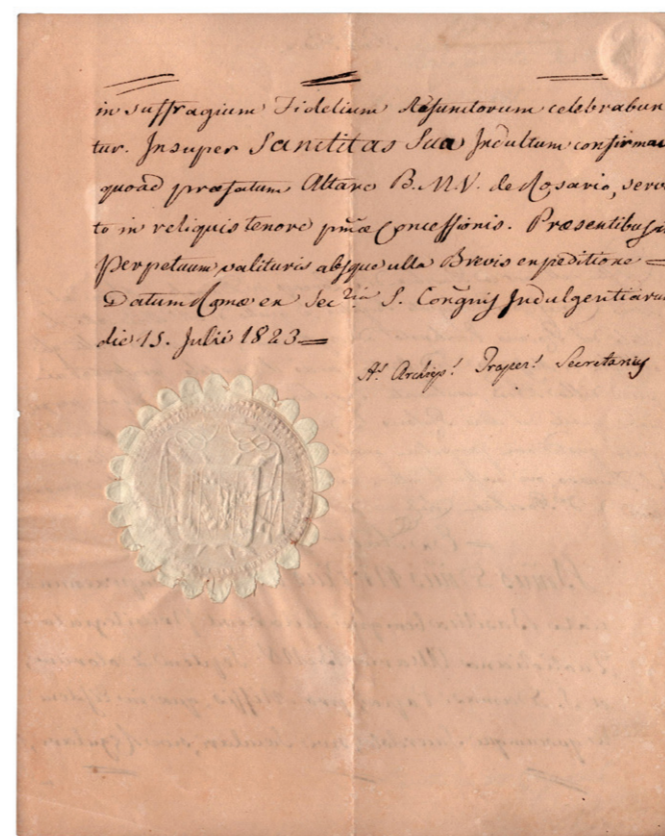 in suffragium Fidelium Defunctorum celebrabun
tur. Insuper Sanctitas Sua Indultum confirma
quoad præfatum Altare B.M.V. de Rosario, serva
to in reliquis tenore pmæ Concessionis. Præsentibus in
Perpetuum valituris absque ulla Brevis expeditione =
Datum Romæ ex Sec.ria S. Congnis Indulgentiaru
die 15. Julii 1823 =
A. Archip. Secretarius